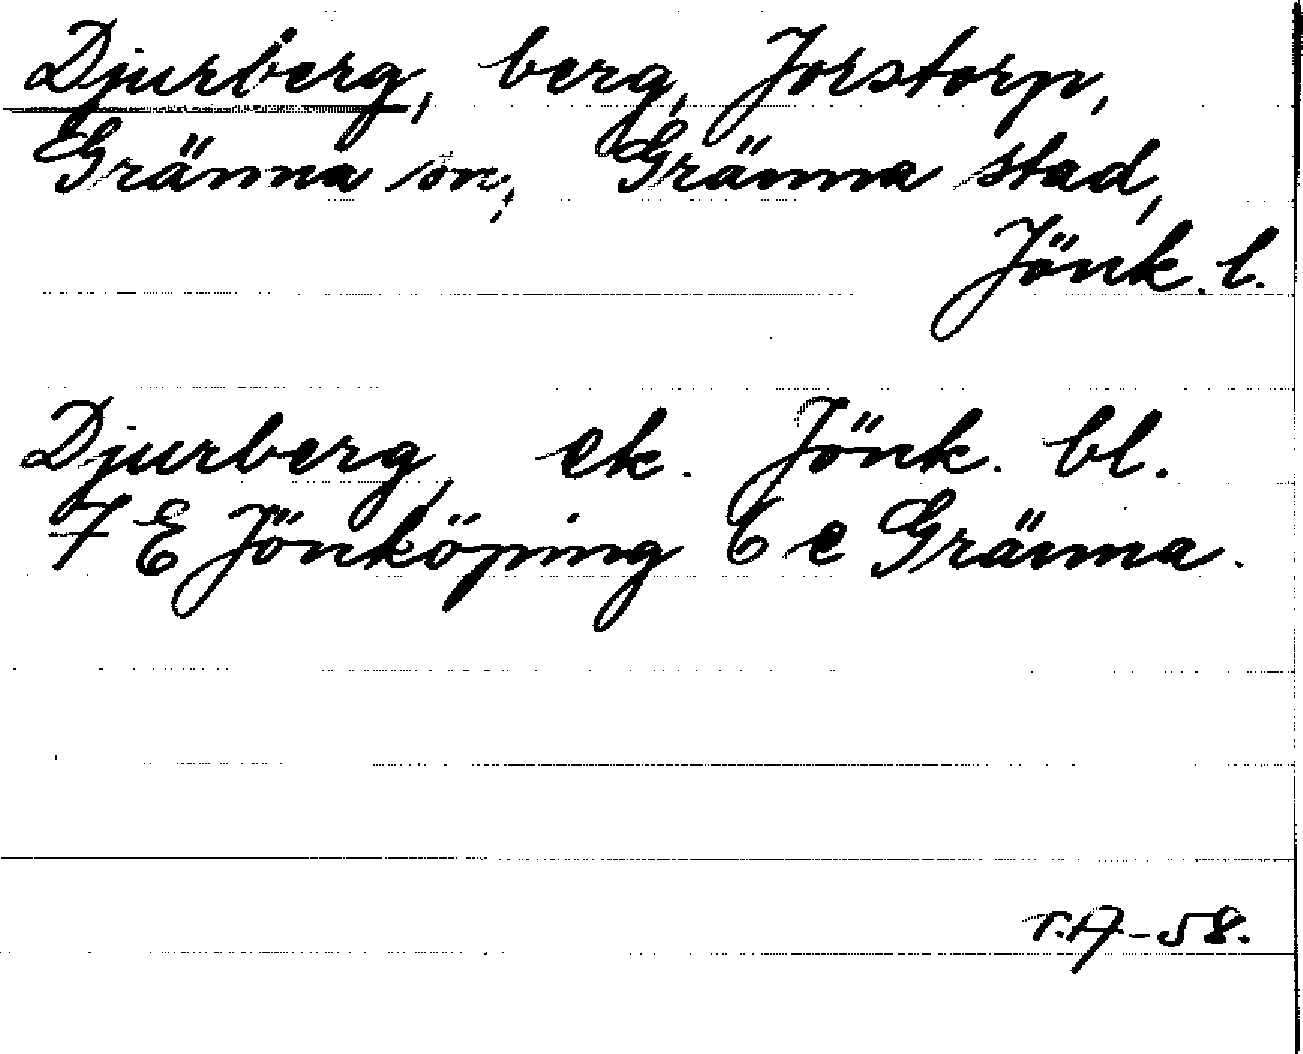 Djurberg, berg, Jorstorp,
Gränna sn, Gränna stad,
Jönk. l.
Djurberg, ek. Jönk. bl.
7 E Jönköping 6 e Gränna.
T.A-58.